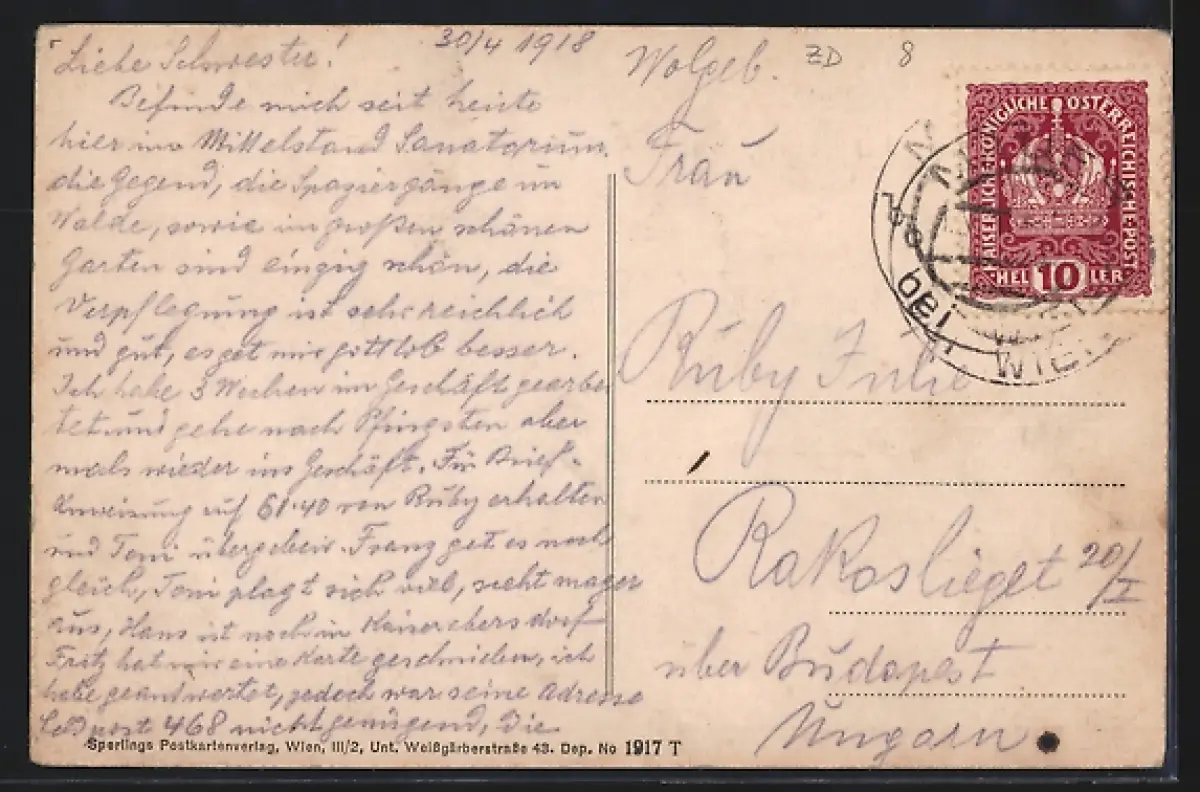 30/4 1918
Liebe Schwester!
Befinde mich seit heute
hier im Mittelstand Sanatorium,
die Gegend, die Spaziergänge im
Walde, sowie im großen schönen
Garten sind einzig schön, die
Verpflegung ist sehr reichlich
und gut, es get mir gottlob besser.
Ich habe 3 Wochen im Geschäft gearbei
tet und gehe nach Pfingsten aber
mals wieder ins Geschäft. Für Brief-
Anweisung auf 61·40 von Ruby erhalten
und Toni übergeben. Franz get es noch
gleich, Toni plagt sich viel, sieht mager
aus, Hans ist noch in Kaiserebersdorf
Fritz hat mir eine Karte geschrieben, ich
habe geantwortet, jedoch war seine Adresse
Feldpost 468 nicht genügend, Die
Sperlings Postkartenverlag, Wien, III/2, Unt. Weißgärberstraße 43. Dep. No 1917 T
Wolgeb. ZD 8
Frau
Ruby Julie
Rakosliget 20/I
über Budapest
Ungarn
KAISERLICHE·KÖNIGLICHE ÖSTERREICHISCHE·POST
HEL 10 LER
bei WIEN